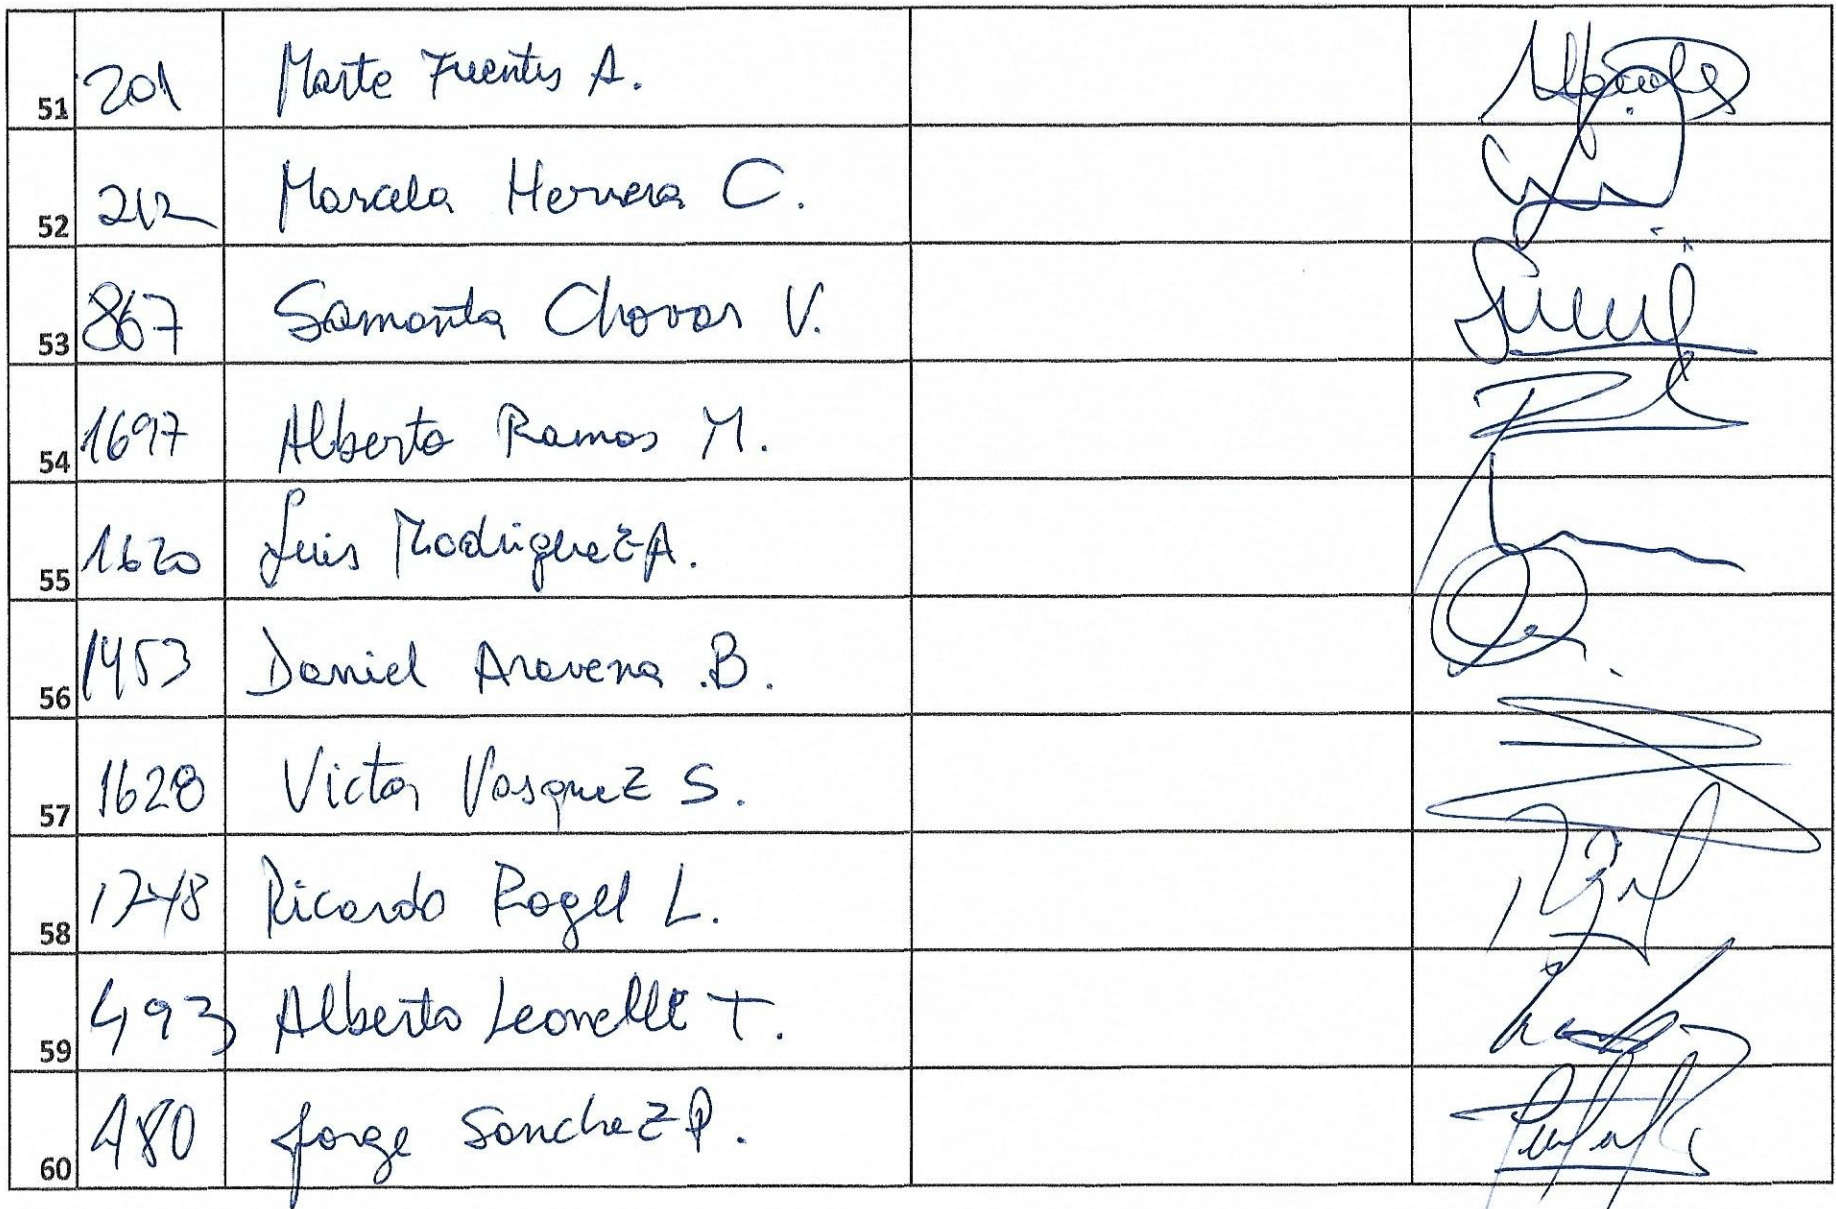 51 201 Marta Fuentes A.
52 212 Marcela Herrera C.
53 867 Samanta Chovar V.
54 1697 Alberto Ramos M.
55 1620 Luis Rodriguez A.
56 1453 Daniel Aravena B.
57 1628 Victor Vasquez S.
58 1748 Ricardo Rogel L.
59 493 Alberto Leonelli T.
60 480 Jorge Sanchez P.